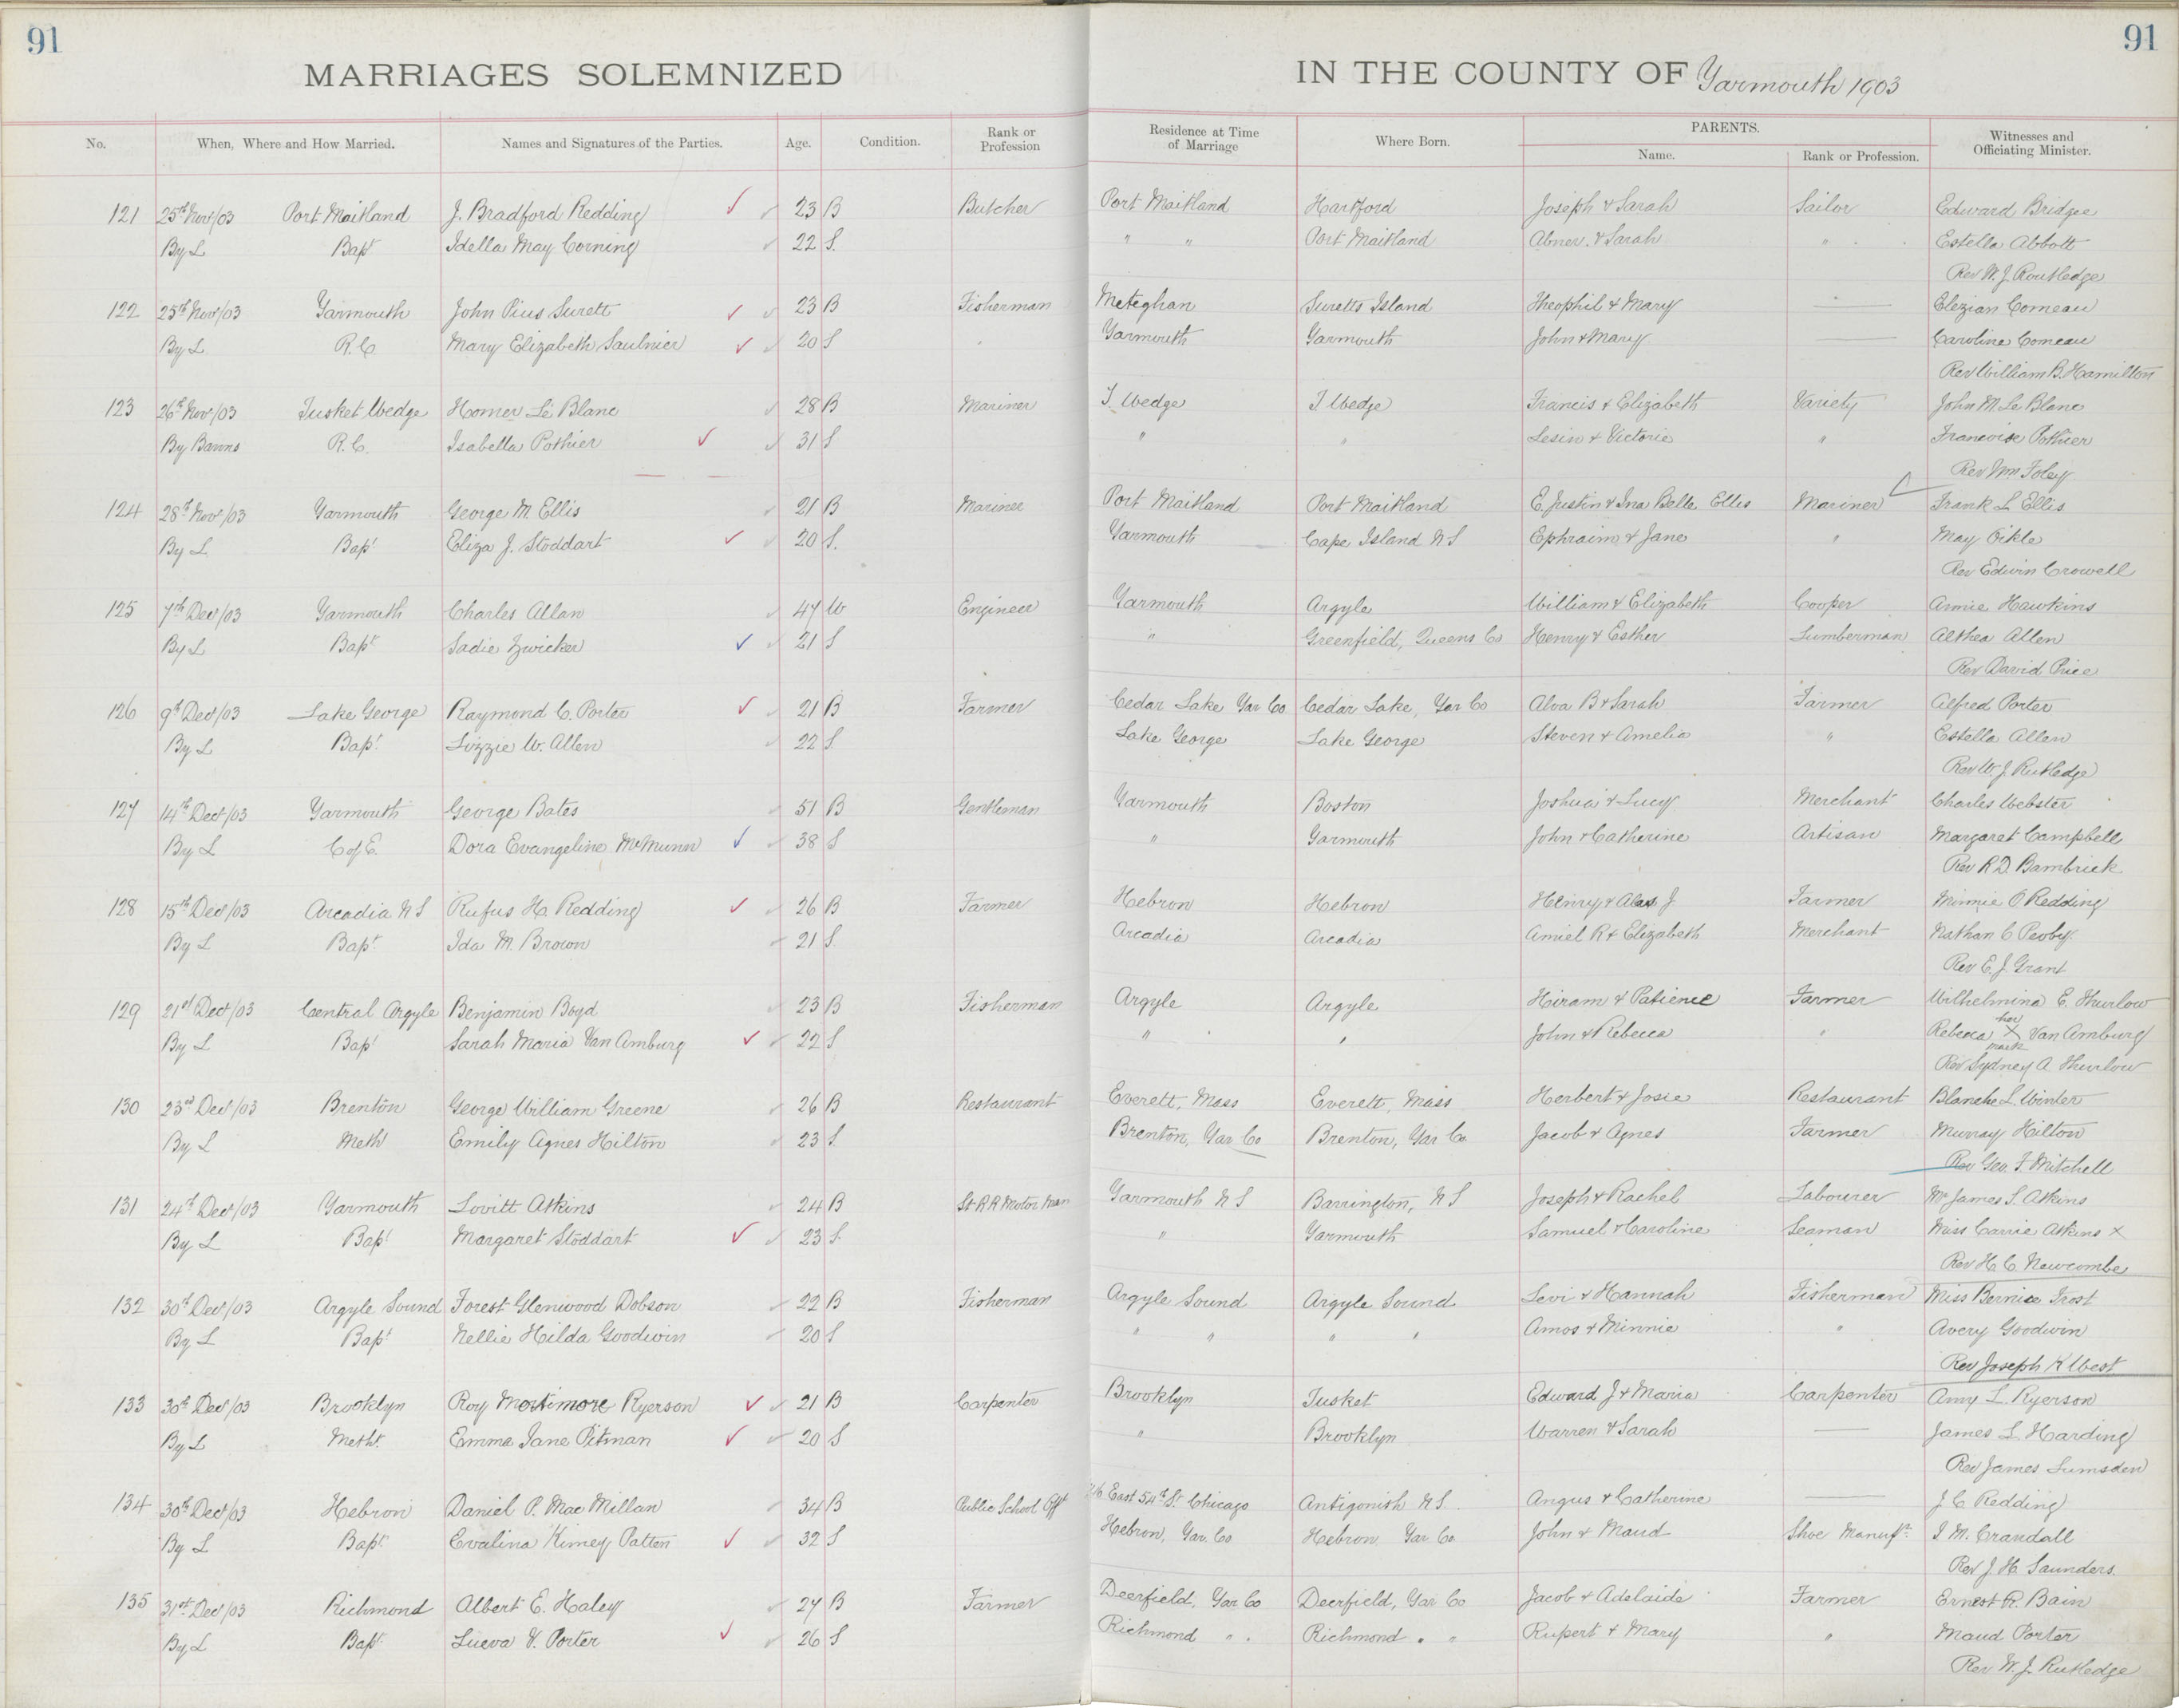 91
91
MARRIAGES SOLEMNIZED IN THE COUNTY OF Yarmouth 1903
No. When, Where and How Married. Names and Signatures of the Parties. Age. Condition. Rank or Profession Residence at Time of Marriage Where Born. PARENTS. Name. Rank or Profession. Witnesses and Officiating Minister.
121 25th Nov/03 Port Maitland J. Bradford Redding 23 B Butcher Port Maitland Hartford Joseph & Sarah Sailor Edward Bridgee
By L Bapt Idella May Corning 22 S. " " Port Maitland Abner & Sarah " Estella Abbott
Rev W. J. Routledge
122 25th Nov/03 Yarmouth John Pius Surett 23 B Fisherman Meteghan Suretts Island Theophil & Mary — Elezian Comeau
By L R.C. Mary Elizabeth Saulnier 20 S Yarmouth Yarmouth John & Mary — Caroline Comeau
Rev William B. Hamilton
123 26th Nov/03 Tusket Wedge Homer Le Blanc 28 B Mariner T. Wedge T Wedge Francis & Elizabeth Variety John M. Le Blanc
By Banns R.C. Isabella Pothier 31 S " " Lesin & Victorie " Francoise Pothier
Rev Wm Foley
124 28th Nov/03 Yarmouth George M. Ellis 21 B Mariner Port Maitland Port Maitland E. Justin & Ina Belle Ellis Mariner Frank L Ellis
By L Bapt Eliza J. Stoddart 20 S. Yarmouth Cape Island N S Ephraim & Jane " May Pikle
Rev Edwin Crowell
125 7th Dec/03 Yarmouth Charles Allan 47 W Engineer Yarmouth Argyle William & Elizabeth Cooper Annie Hawkins
By L Bapt Sadie Zwicker 21 S " Greenfield, Queens Co Henry & Esther Lumberman Althea Allen
Rev David Price
126 9th Dec/03 Lake George Raymond C. Porter 21 B Farmer Cedar Lake Yar Co Cedar Lake, Yar Co Alva B & Sarah Farmer Alfred Porter
By L Bapt. Lizzie W. Allen 22 S Lake George Lake George Steven & Amelia " Estella Allen
Rev W. J. Rutledge
127 14th Dec/03 Yarmouth George Bates 51 B Gentleman Yarmouth Boston Joshua & Lucy Merchant Charles Webster
By L C of E. Dora Evangeline McMunn 38 S " Yarmouth John & Catherine Artisan Margaret Campbell
Rev R. D. Bambrick
128 15th Dec/03 Arcadia N S Rufus H. Redding 26 B Farmer Hebron Hebron Henry & J Farmer Minnie O Redding
By L Bapt Ida M. Brown 21 S. Arcadia Arcadia Amiel R & Elizabeth Merchant Nathan C
Rev E. J. Grant
129 21st Dec/03 Central Argyle Benjamin Boyd 23 B Fisherman Argyle Argyle Hiram & Patience Farmer Wilhelmina E. Thurlow
By L Bapt Sarah Maria Van Amburg 22 S " " John & Rebecca " Rebecca her X mark Van Amburg
Rev Sydney A Thurlow
130 23rd Dec/03 Brenton George William Greene 26 B Restaurant Everett, Mass Everett, Mass Herbert & Josie Restaurant Blanche L. Winter
By L Meth Emily Agnes Hilton 23 S. Brenton, Yar Co Brenton, Yar Co Jacob & Agnes Farmer Murray Hilton
Rev Geo. F. Mitchell
131 24th Dec/03 Yarmouth Lovitt Atkins 24 B St R R Motor Man Yarmouth N S Barrington, N S Joseph & Rachel Labourer Mr James S. Atkins
By L Bapt Margaret Stoddart 23 S. " Yarmouth Samuel & Caroline Seaman Miss Carrie Atkins X
Rev H. C. Newcombe
132 30th Dec/03 Argyle Sound Forest Glenwood Dobson 22 B Fisherman Argyle Sound Argyle Sound Levi & Hannah Fisherman Miss Bernice Frost
By L Bapt Nellie Hilda Goodwin 20 S " " " " Amos & Minnie " Avery Goodwin
Rev Joseph K West
133 30th Dec/03 Brooklyn Roy Mortimore Ryerson 21 B Carpenter Brooklyn Tusket Edward J & Maria Carpenter Amy L. Ryerson
By L Metht. Emma Jane Pitman 20 S " Brooklyn Warren & Sarah — James L. Harding
Rev James Lumsden
134 30th Dec/03 Hebron Daniel P. Mac Millan 34 B Public School Offr East 54th St Chicago Antigonish N S. Angus & Catherine — J. C. Redding
By L Bapt Evalina Kimey Patten 32 S Hebron, Yar. Co Hebron Yar Co. John & Maud Shoe Manufr. I. M. Crandall
Rev J. H. Saunders.
135 31st Dec/03 Richmond Albert E. Haley 27 B Farmer Deerfield, Yar Co Deerfield, Yar Co Jacob & Adelaide Farmer Ernest R. Bain
By L Bapt Lueva V. Porter 26 S Richmond " " Richmond " " Rupert & Mary " Maud Porter
Rev W. J. Rutledge